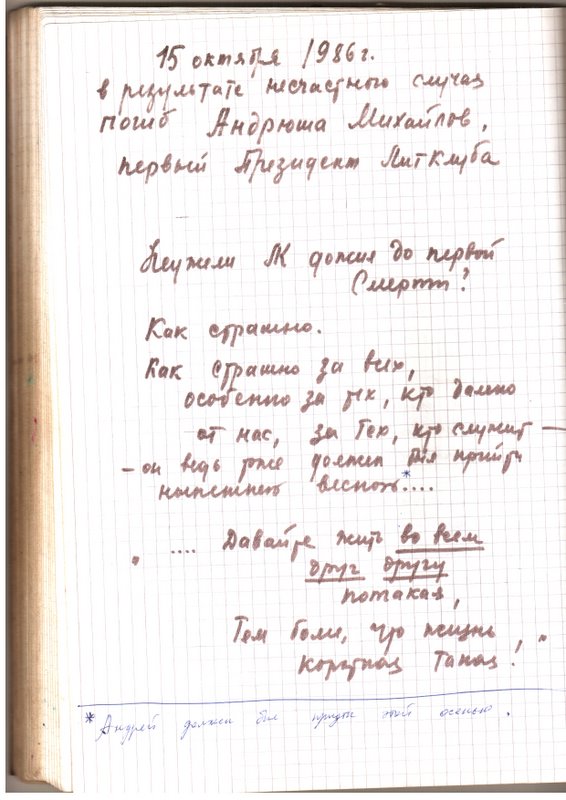 15 октября 1986 г.
в результате несчастного случая
погиб Андрюша Михайлов,
первый Президент Литклуба
Неужели ЛК дожил до первой
Смерти?
Как страшно.
Как страшно за всех,
особенно за тех, кто далеко
от нас, за тех, кто служит —
– он ведь тоже должен был прийти
нынешней весной*....
" .... Давайте жить во всем
друг другу
потакая,
Тем боли, что жизнь
короткая такая! "
* Андрей должен был придти этой осенью.